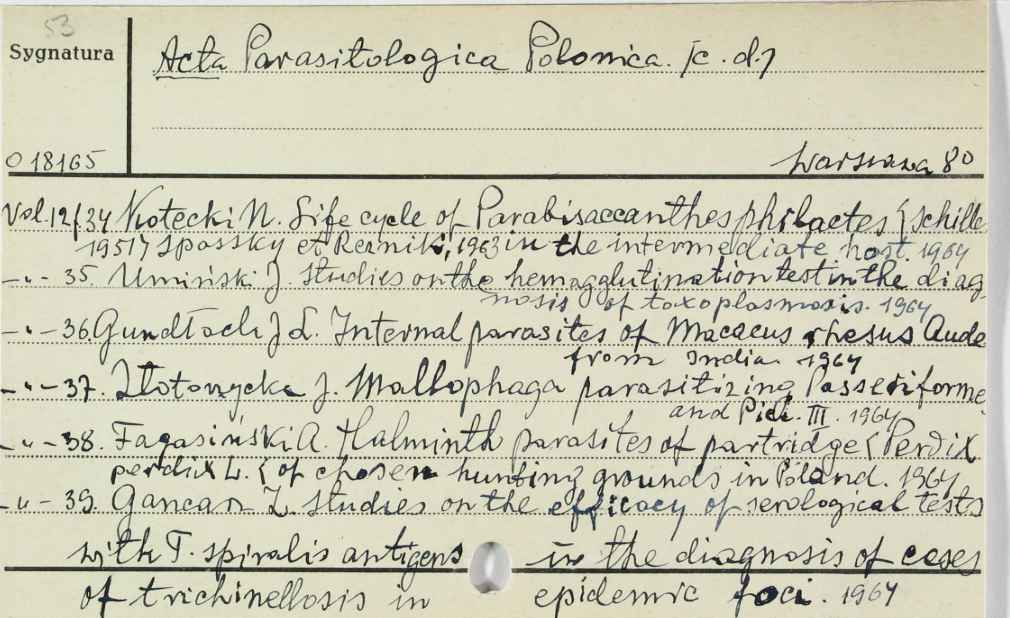 53
Sygnatura
Acta Parasitologica Polonica. /c. d./
O 18165
Warszawa 8⁰
Vol. 12/34 Kotecki N. Life cycle of Parabisaccanthes philactes {Schille
1951/ Spassky et Reznik, 1963 in the intermediate host. 1964
-"- 35. Umiński J. Studies on the hemagglutination test in the diag
nosis of toxoplasmosis. 1964
-"- 36. Gundłach J. L. Internal parasites of Macacus rhesus Aude
from India. 1964
-"- 37. Złotorzycka J. Mallophaga parasitizing Passeriforme
and Pici. III. 1964
-"- 38. Fagasiński A. Halminth parasites of partridge { Perdix
perdix L. { of chosen hunting grounds in Poland. 1964
-"- 39. Gancarz Z. Studies on the efficacy of serological tests
with T. spiralis antigens in the diagnosis of cases
of trichinellosis in epidemic foci. 1964